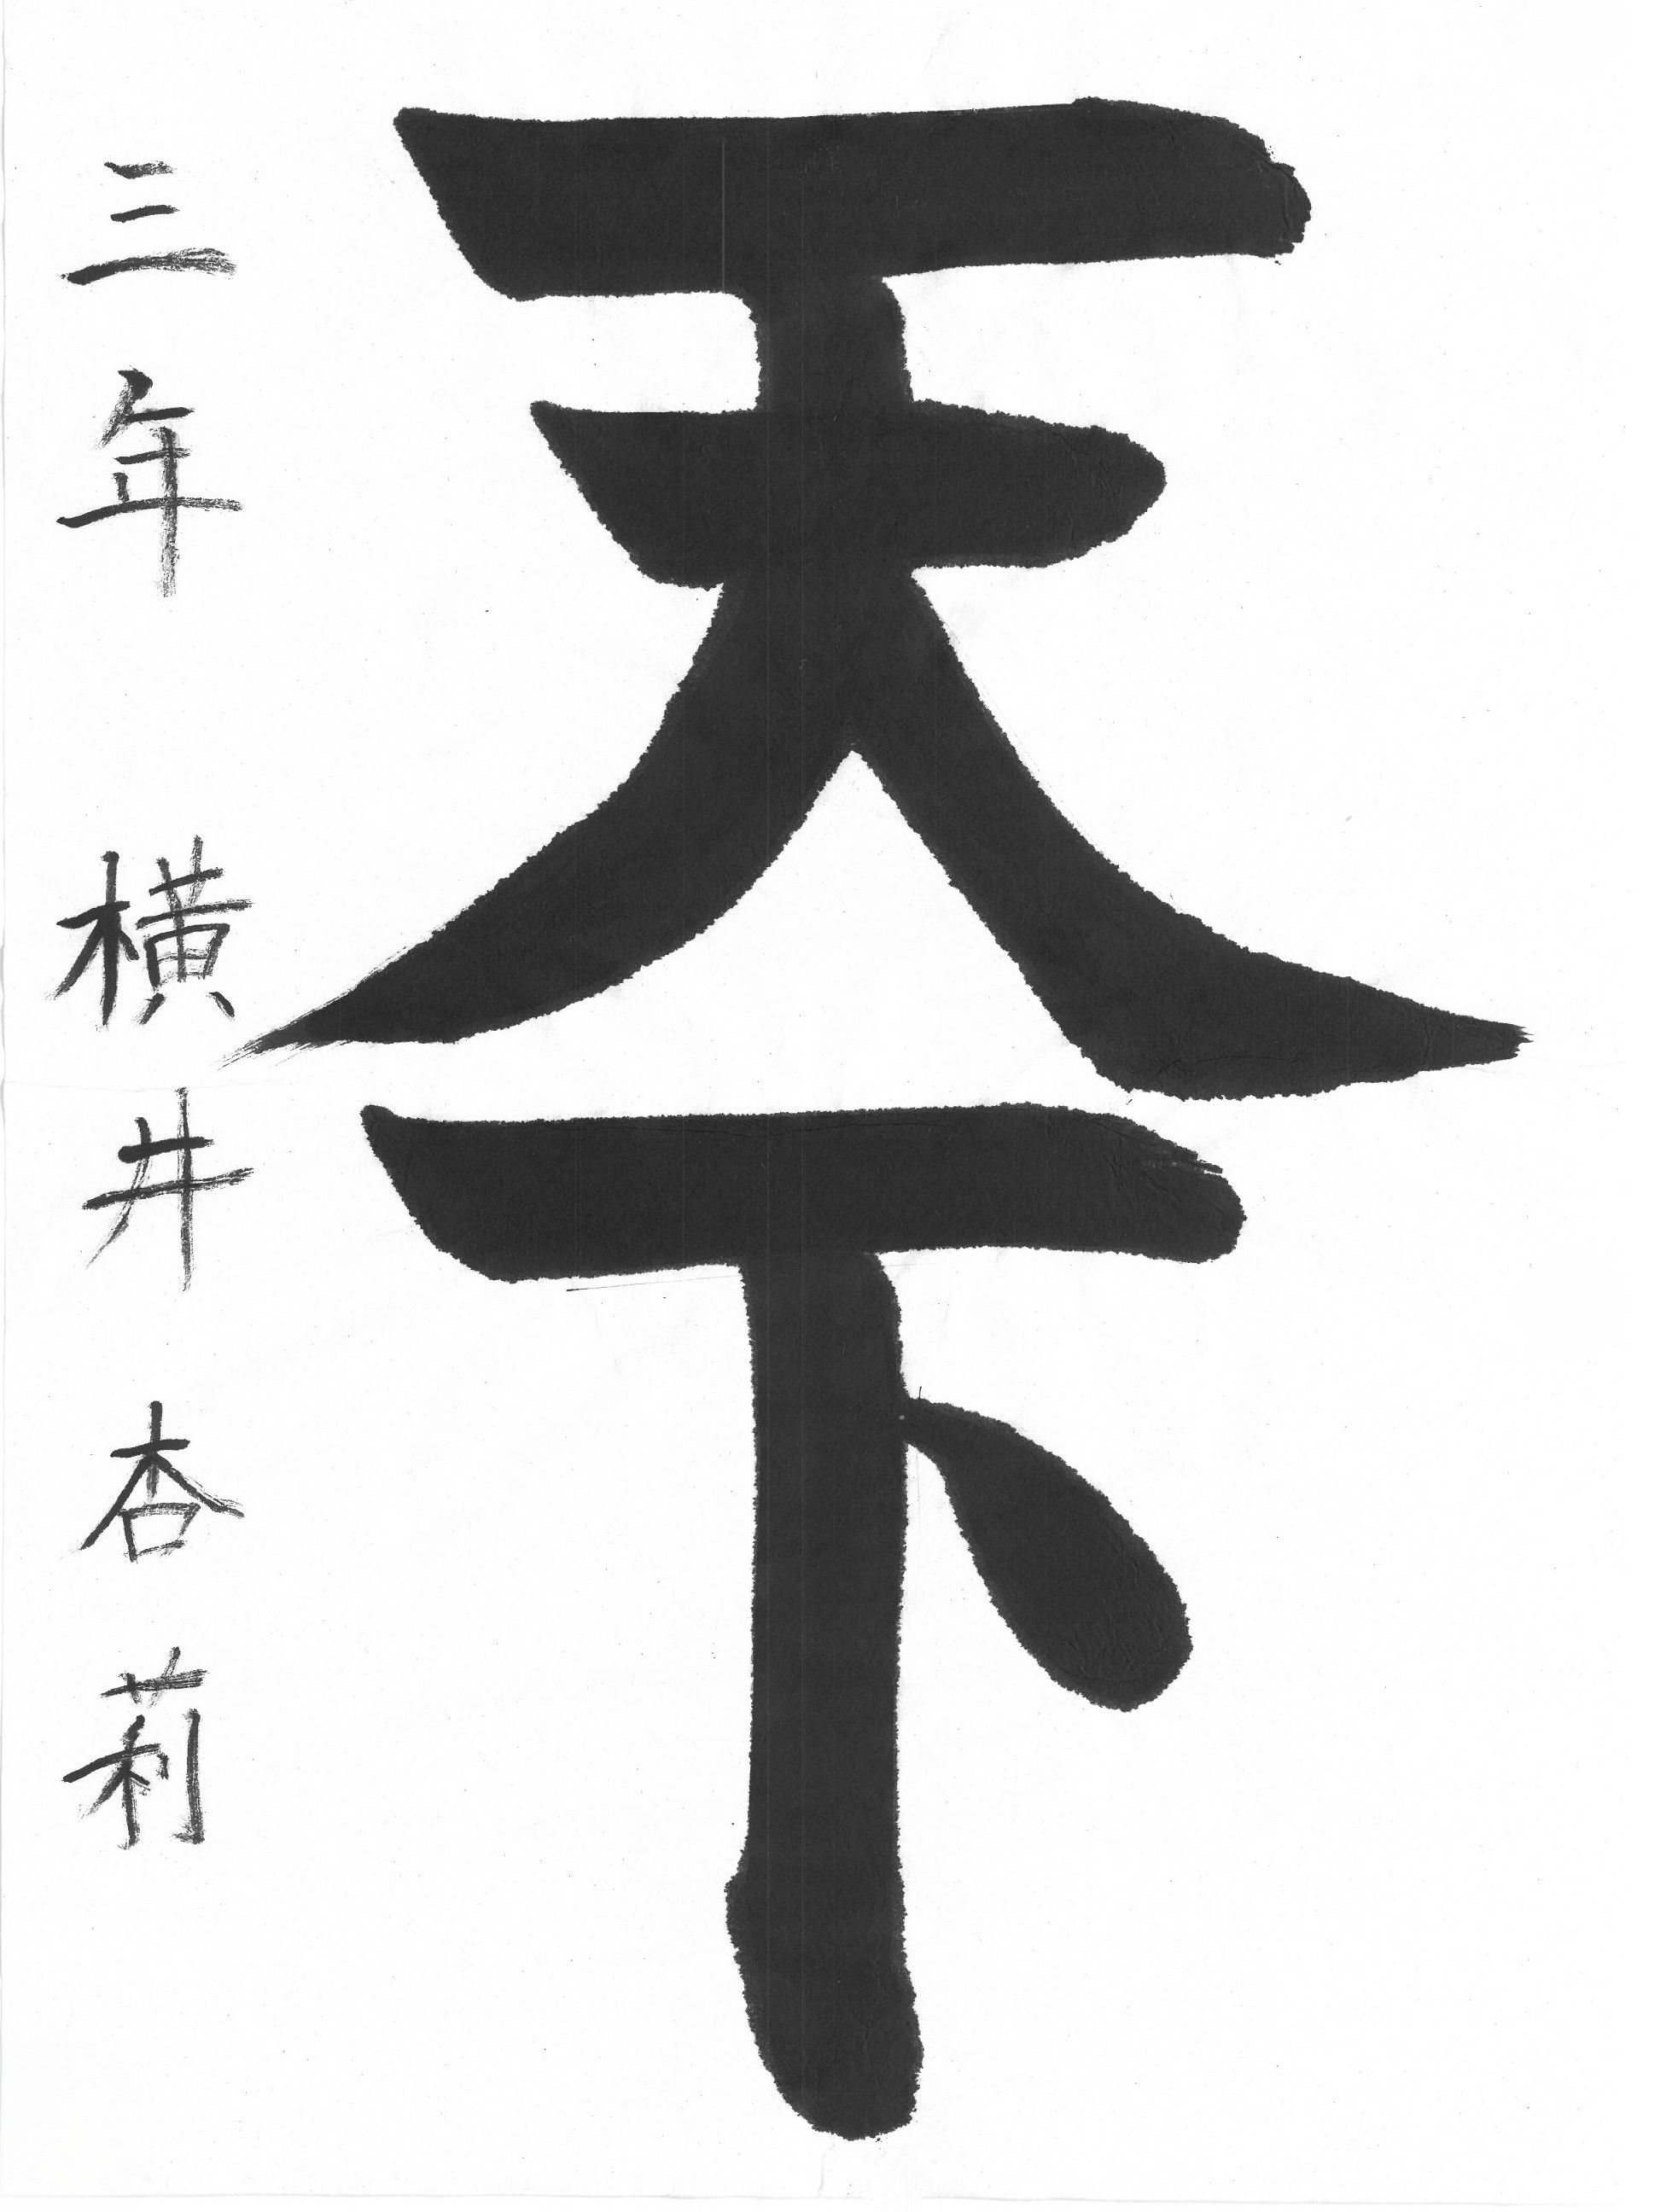 天下
三年 横井杏莉